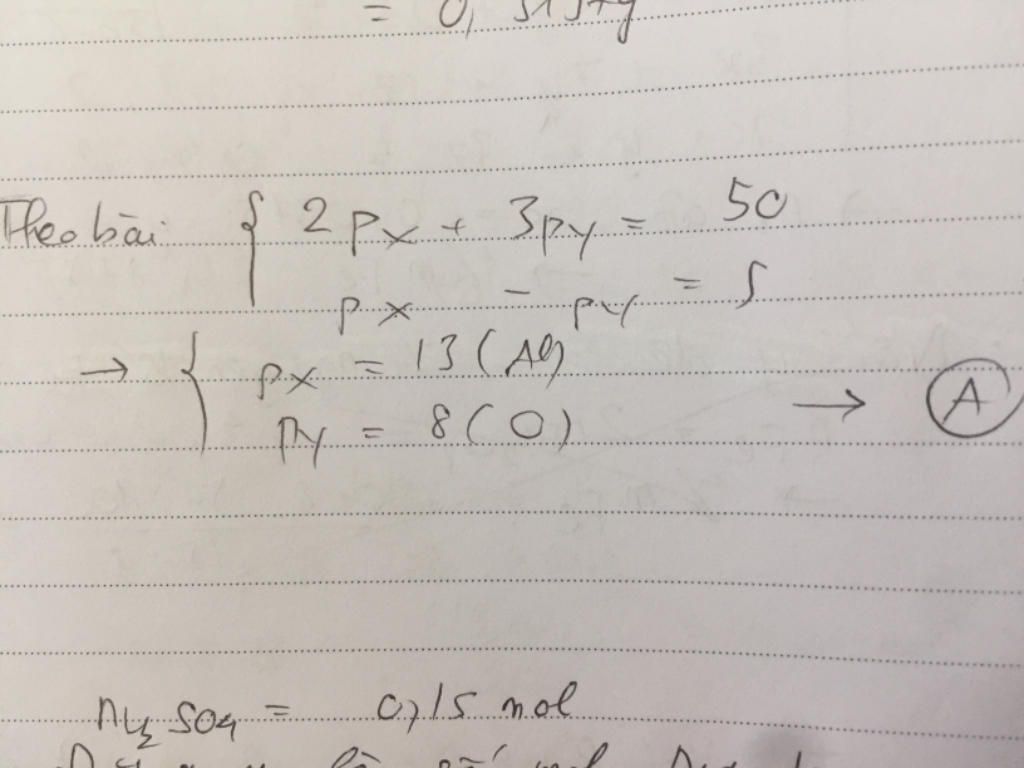 = 0,
Theo bài { 2px + 3py = 50
px - py = 5
→ { px = 13 (Al)
py = 8 (O) → A
nH2SO4 = 0,15 mol